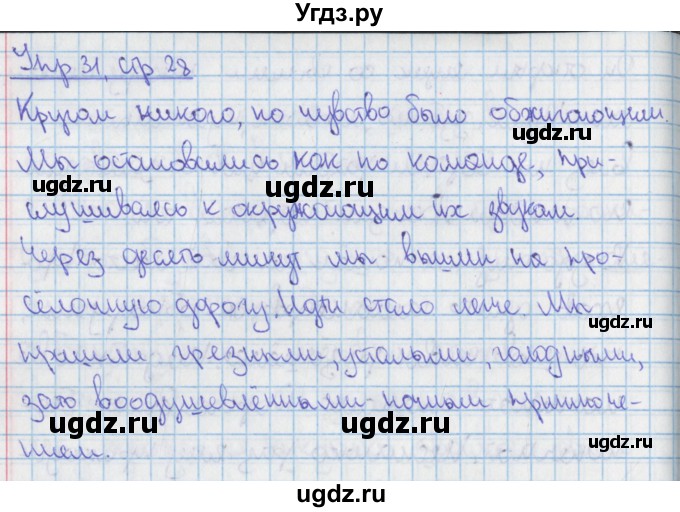 Угдз.ру
Упр 31, стр 28
Кругом никого, но чувство было обжигающим.
ugdz.ru
Мы остановились как по команде, при-
ugdz.ru ugdz.ru
слушиваясь к окружающим их звукам.
Через десять минут мы вышли на про-
сёлочную дорогу. Идти стало легче. Мы
ugdz.ru
пришли грязными, усталыми, голодными,
зато воодушевлёнными ночным приключе-
ugdz.ru ugdz.ru ugdz.ru
нием.
ugdz.ru